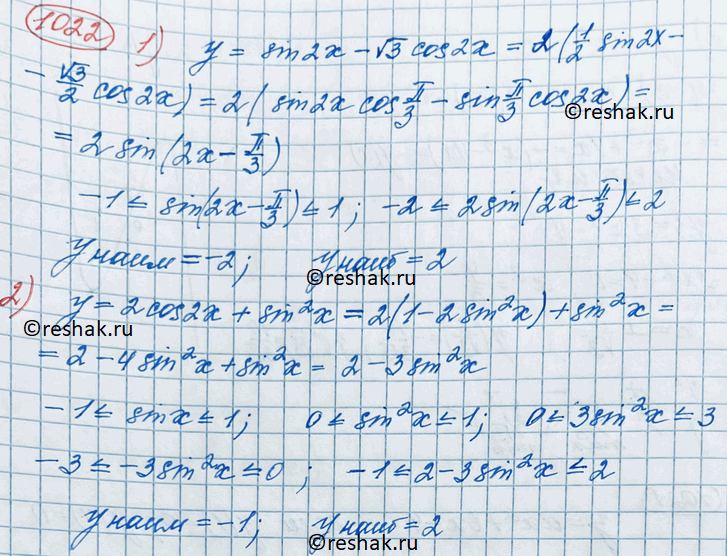 1022 1) y = sin2x − √3 cos2x = 2(1/2 sin2x −
− √3/2 cos2x) = 2(sin2x cos π/3 − sin π/3 cos2x) =
©reshak.ru
= 2 sin(2x − π/3)
−1 ≤ sin(2x − π/3) ≤ 1; −2 ≤ 2sin(2x − π/3) ≤ 2
y наим = −2; y наиб = 2
©reshak.ru
2) y = 2cos2x + sin²x = 2(1 − 2sin²x) + sin²x =
©reshak.ru
= 2 − 4sin²x + sin²x = 2 − 3sin²x
−1 ≤ sinx ≤ 1; 0 ≤ sin²x ≤ 1; 0 ≤ 3sin²x ≤ 3
−3 ≤ −3sin²x ≤ 0; −1 ≤ 2 − 3sin²x ≤ 2
y наим = −1; y наиб = 2
©reshak.ru